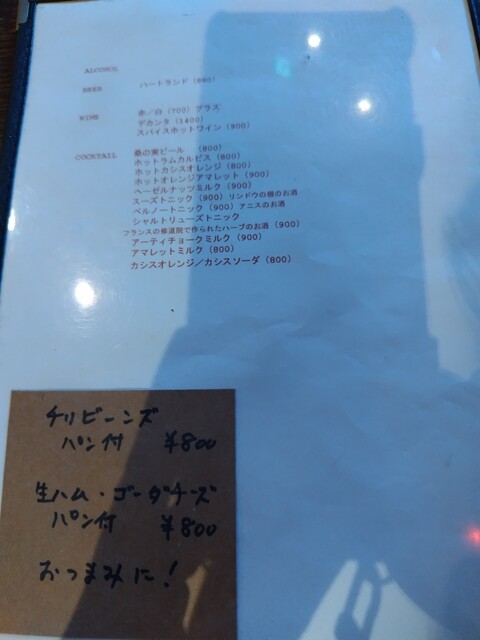 ALCOHOL
BEER ハートランド (680)
WINE 赤／白 (700) グラス
デカンタ (1400)
スパイスホットワイン (900)
COCKTAIL 桑の実ビール (800)
ホットラムカルピス (800)
ホットカシスオレンジ (800)
ホットオレンジアマレット (900)
ヘーゼルナッツミルク (900)
スーズトニック (900) リンドウの根のお酒
ペルノートニック (900) アニスのお酒
シャルトリューズトニック
フランスの修道院で作られたハーブのお酒 (900)
アーティチョークミルク (900)
アマレットミルク (800)
カシスオレンジ／カシスソーダ (800)
チリビーンズ
パン付 ¥800
生ハム・ゴーダチーズ
パン付 ¥800
おつまみに!